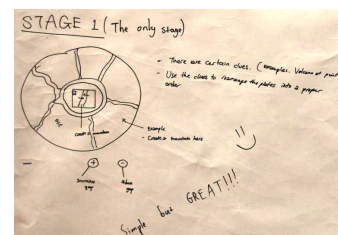 STAGE 1 (The only stage)
- There are certain clues. (examples. Volcano at point
- Use the clues to rearrange the plates into a proper
order
Create a mountain
- Example
- Create a mountain here
Increase
gap
gap
Simple but GREAT!!!